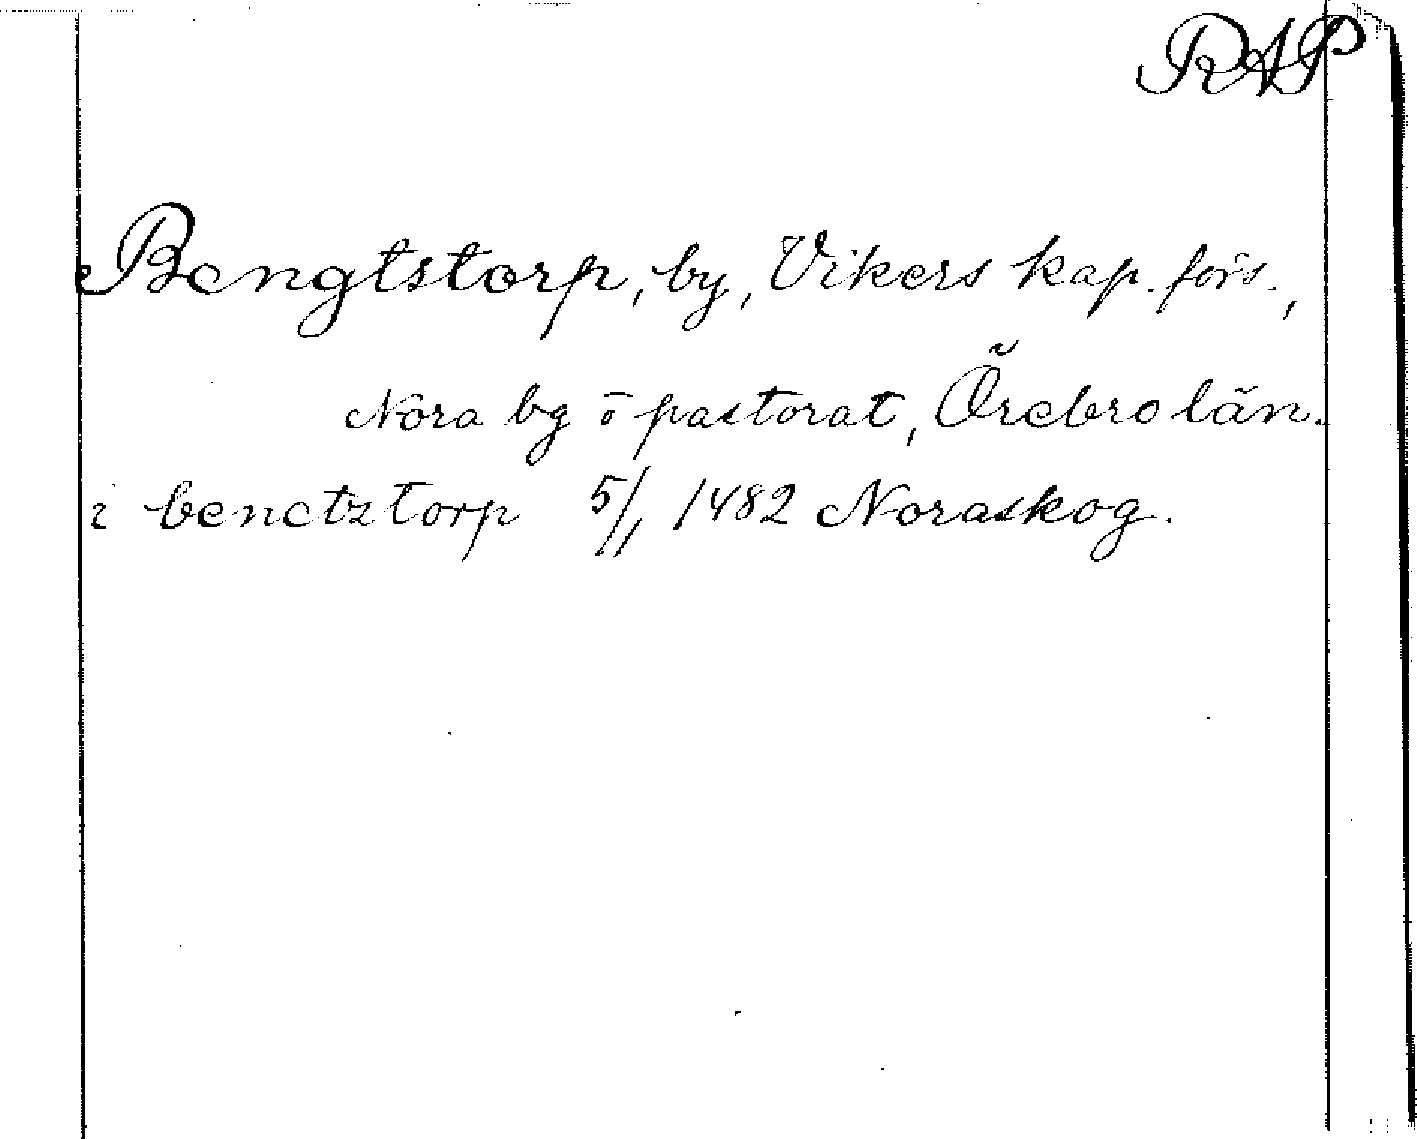 RAP
Bengtstorp, by, Vikers kap. förs.,
Nora bg ö pastorat, Örebro län.
i benctztorp 5/11 1482 Noraskog.